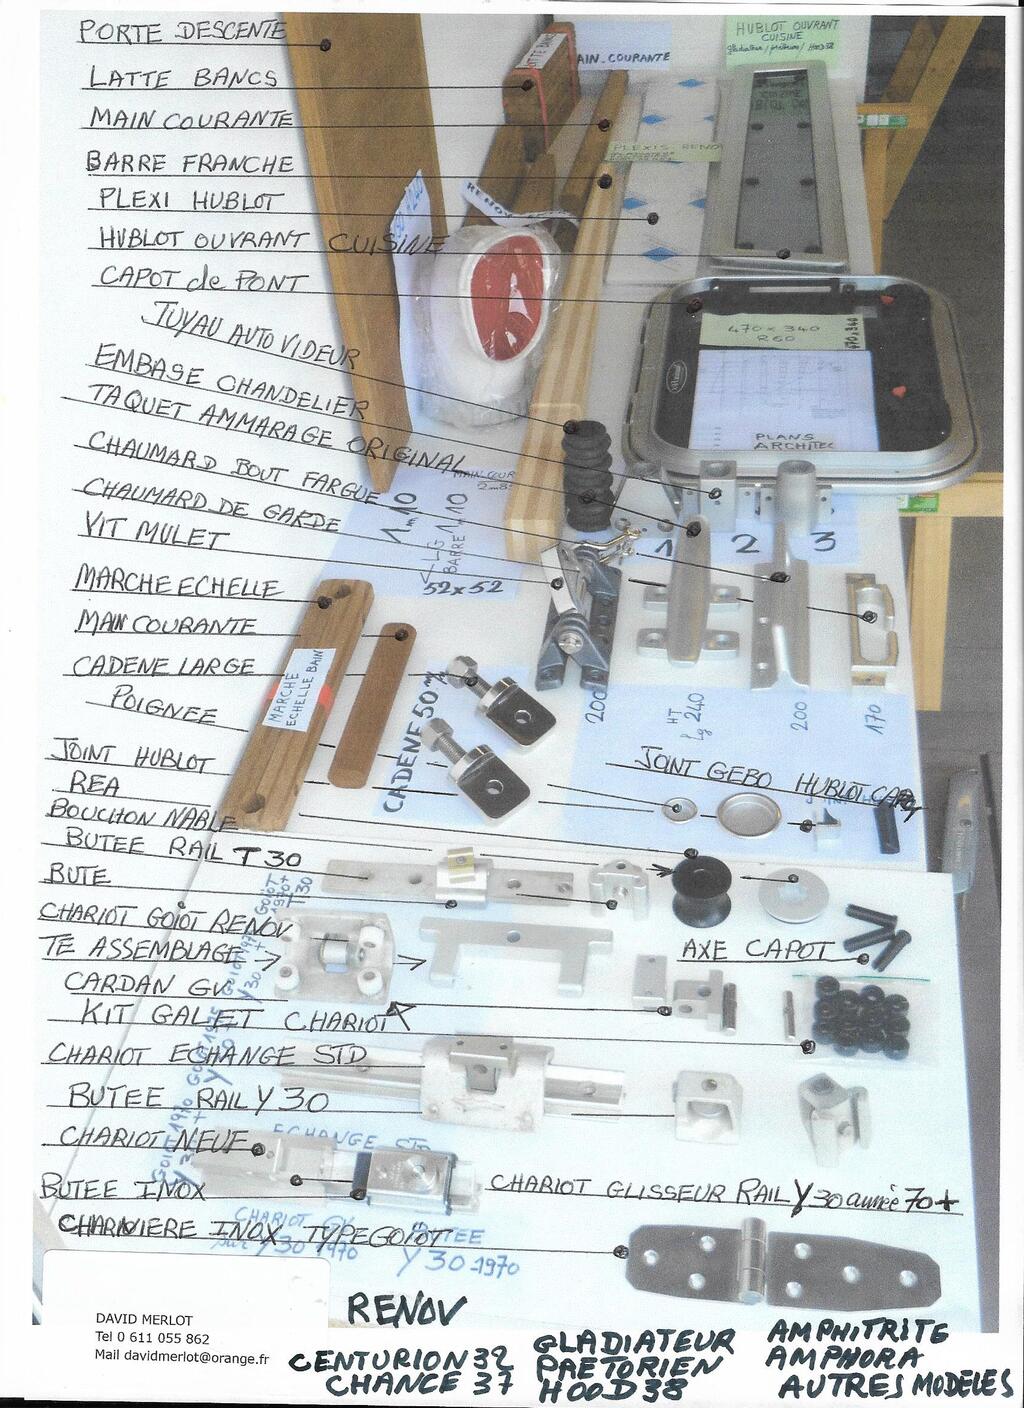 PORTE DESCENTE
LATTE BANCS
MAIN COURANTE
BARRE FRANCHE
PLEXI HUBLOT
HUBLOT OUVRANT CUISINE
CAPOT de PONT
TUYAU AUTO VIDEUR
EMBASE CHANDELIER
TAQUET AMMARAGE ORIGINAL
CHAUMARD BOUT FARGUE
CHAUMARD DE GARDE
VIT MULET
MARCHE ECHELLE
MAIN COURANTE
CADENE LARGE
POIGNEE
JOINT HUBLOT
REA
BOUCHON NABLE
BUTEE RAIL T30
BUTE
CHARIOT GOIOT RENOV
TE ASSEMBLAGE
CARDAN GV
KIT GALET CHARIOT
CHARIOT ECHANGE STD
BUTEE RAIL Y 30
CHARIOT NEUF
BUTEE INOX
CHARNIERE INOX TYPE GOIOT
HUBLOT OUVRANT
CUISINE
MAIN.COURANTE
PLEXIS RENOV
470 x 340
R60
470x340
PLANS
ARCHITEC
1m10
LG
BARRE 1m10
52x52
1 2 3
MARCHE
ECHELLE BAIN
CADENE 50
200
HT
Lg 240
200
170
JOINT GEBO HUBLOT CAPOT
AXE CAPOT
ECHANGE STD
CHARIOT GV
BUTEE
Y 30 1970
CHARIOT GLISSEUR RAIL Y 30 année 70+
DAVID MERLOT
Tel 0 611 055 862
Mail davidmerlot@orange.fr
RENOV
CENTURION 32
CHANCE 37
GLADIATEUR
PRETORIEN
HOOD 38
AMPHITRITE
AMPHORA
AUTRES MODELES